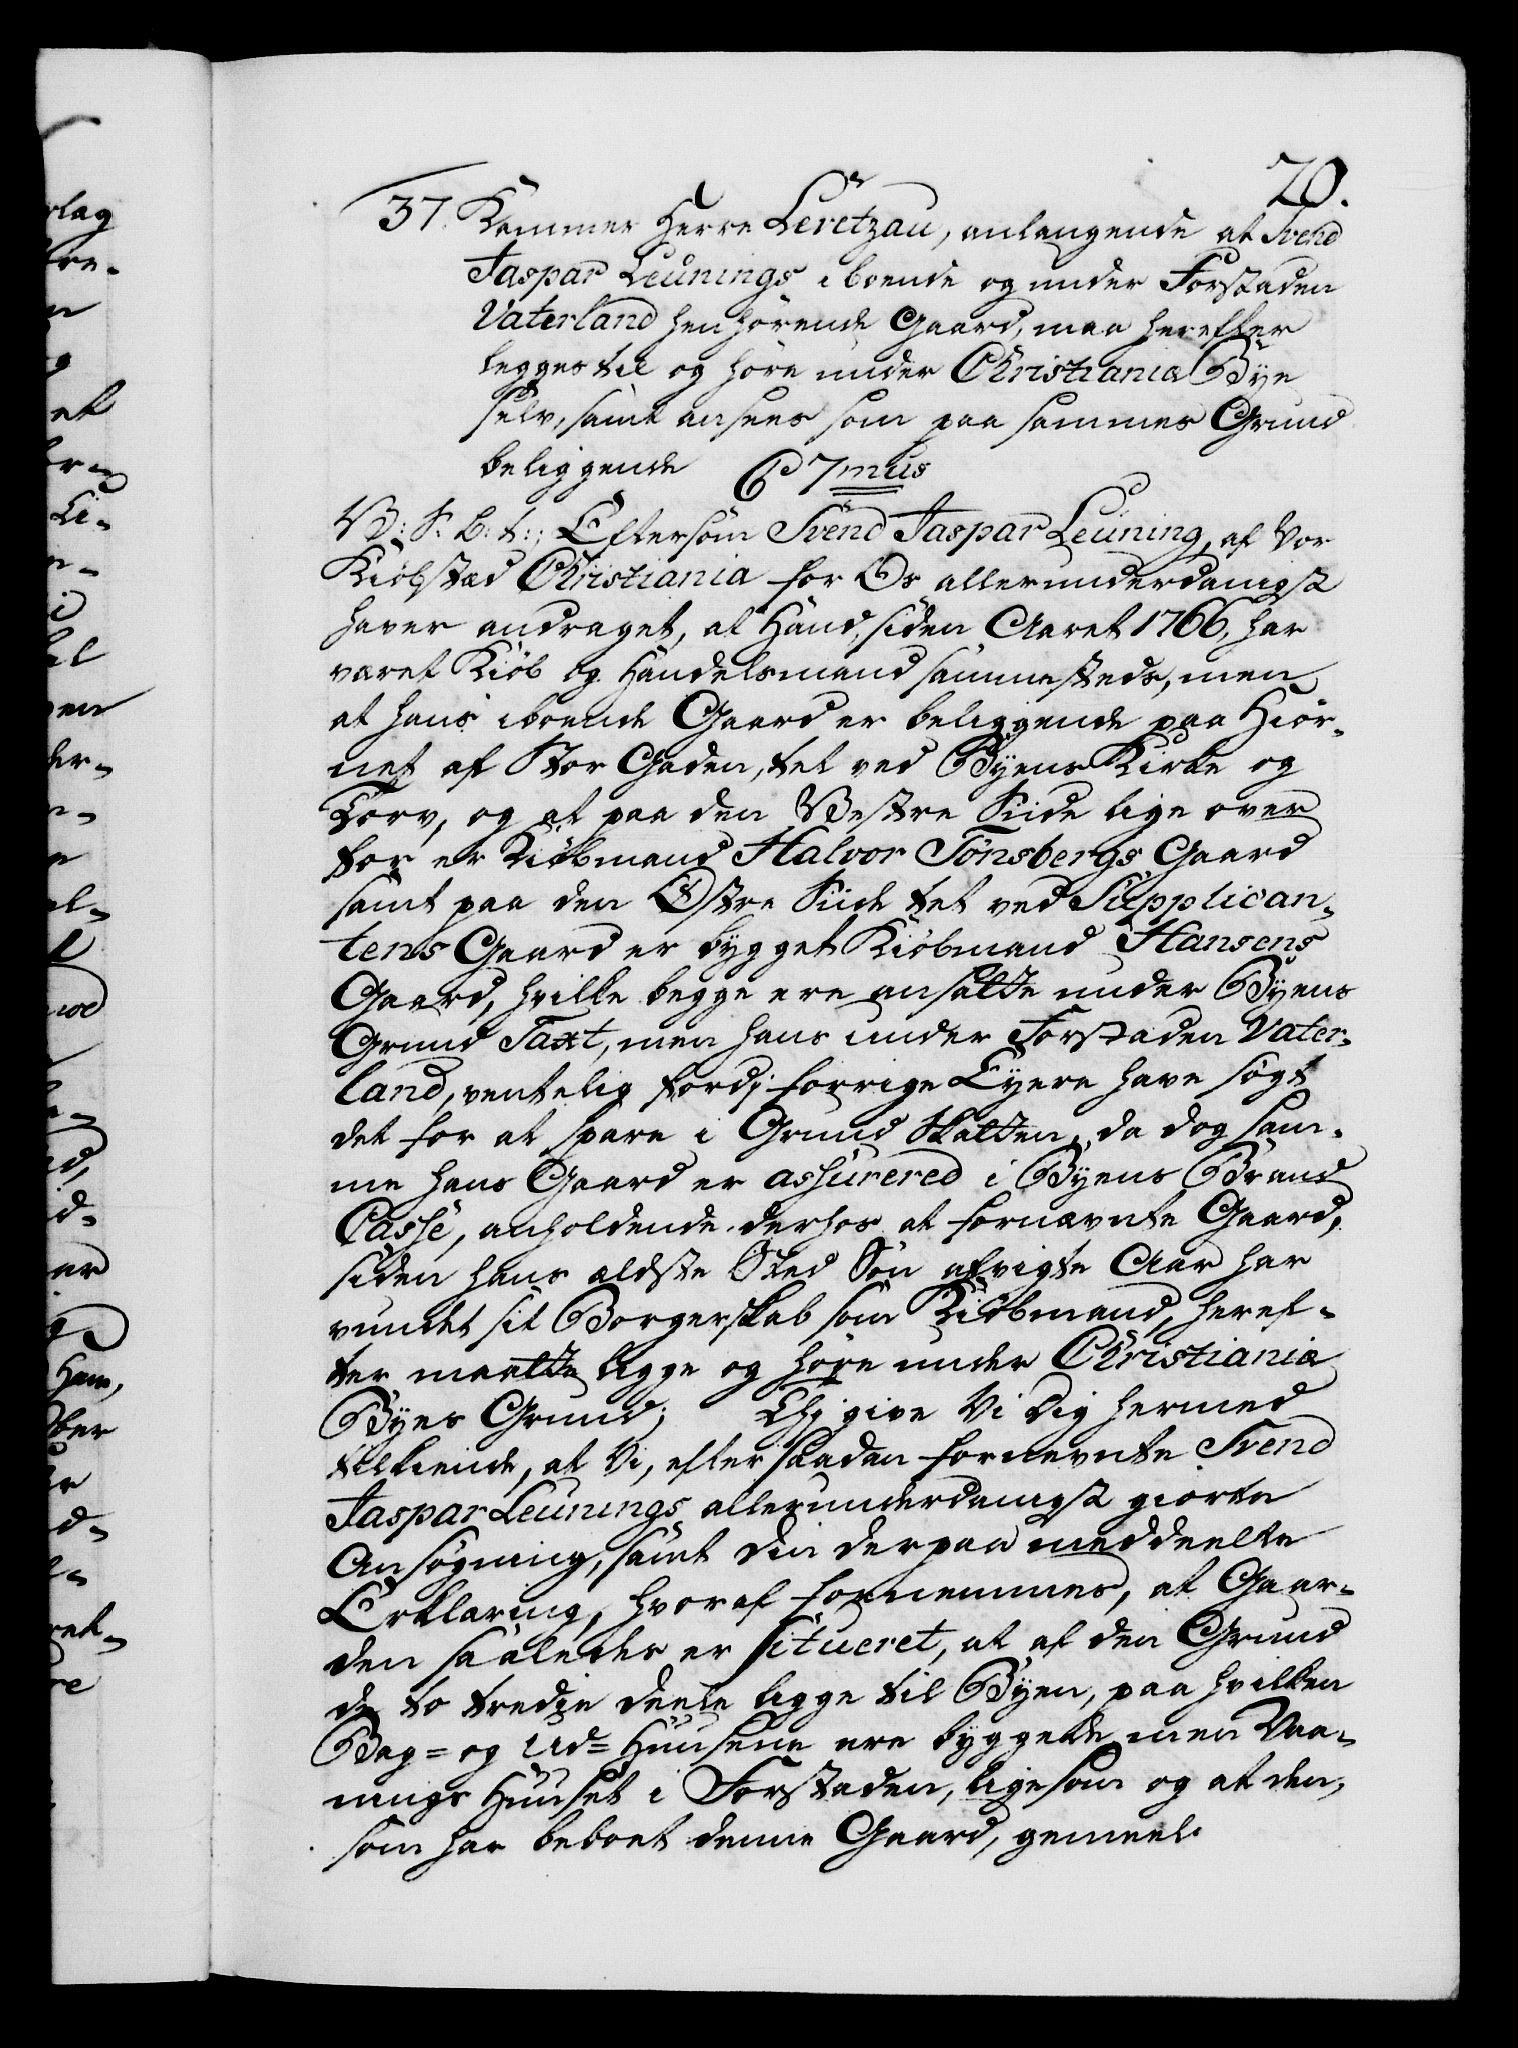 20.
37. Kammer Herre Levetzau, anlangende at Svend
Jaspar Leunings iboende og under Forstaden
Vaterland henhørende Gaard, maa herefter
legges til og høre under Christiania Bye
selv, samt ansees som paa sammes Grund
beliggende C 7mus
V: S. B: t:; Eftersom Svend Jaspar Leuning, af Vor
Kiøbstæd Christiania for Os allerunderdanigst
haver andraget, at Hand, siden Aaret 1766, har
været Kiøb og Handelsmand sammesteds, men
at hans iboende Gaard er beliggende paa Hiør-
net af Stor Gaden, tet ved Byens Kirke og
Torv, og at paa den Vestre Side lige over
for er Kiøbmand Halvor Tønsbergs Gaard
samt paa den Østre Side tet ved Supplican-
tens Gaard er bygget Kiøbmand Hansens
Gaard, hvilke begge ere ansatte under Byens
Grund Taxt, men hans under Forstaden Vater-
land, ventelig fordj forrige Eyere have søgt
det for at spare i Grund Skatten, da dog sam-
me hans Gaard er assurered i Byens Brand
Casse, anholdende derhos at fornævnte Gaard,
siden hans ældste Sted Søn afvigte Aar har
vundet sit Borgerskab som Kiøbmand, heref-
ter maatte ligge og høre under Christiania
Byes Grund; Thj give Vi Dig hermed
tilkiende, at Vi, efter saadan fornævnte Svend
Jaspar Leunings allerunderdanigst giorte
Ansøgning, samt din derpaa meddeelte
Erklæring, hvoraf fornemmes, at Gaar-
den saaledes er situeret, at af den Grund
de to tredie deele ligge til Byen, paa hvilken
Bag= og Ud= Huusene ere byggede men Vaa-
nings Huuset i Forstaden, ligesom og at den,
som har beboet denne Gaard, gemeel-